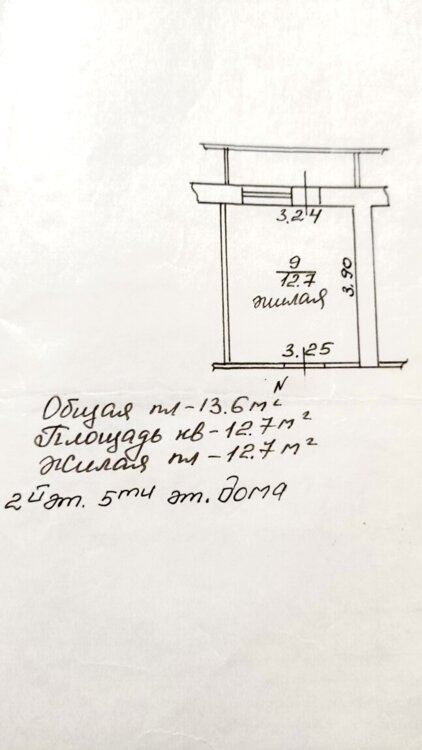 3.24
9
12.7
жилая
3.90
3.25
N
Общая пл-13.6м²
Площадь кв-12.7м²
Жилая пл-12.7м²
2й эт. 5ти эт. дома